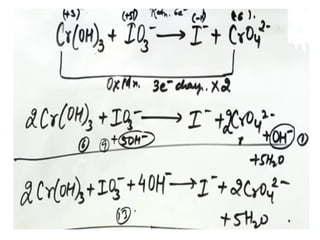 (+3) (+5) Redn. 6e⁻ (-1) (+6).
Cr(OH)₃ + IO₃⁻ → I⁻ + CrO₄²⁻
Oxdn. 3e⁻ chang. x2
2Cr(OH)₃ + IO₃⁻ → I⁻ + 2CrO₄²⁻
⑥ ⑨ + 5OH⁻ + OH⁻ ①
+5H₂O
2Cr(OH)₃ + IO₃⁻ + 4OH⁻ → I⁻ + 2CrO₄²⁻
⑬ + 5H₂O.